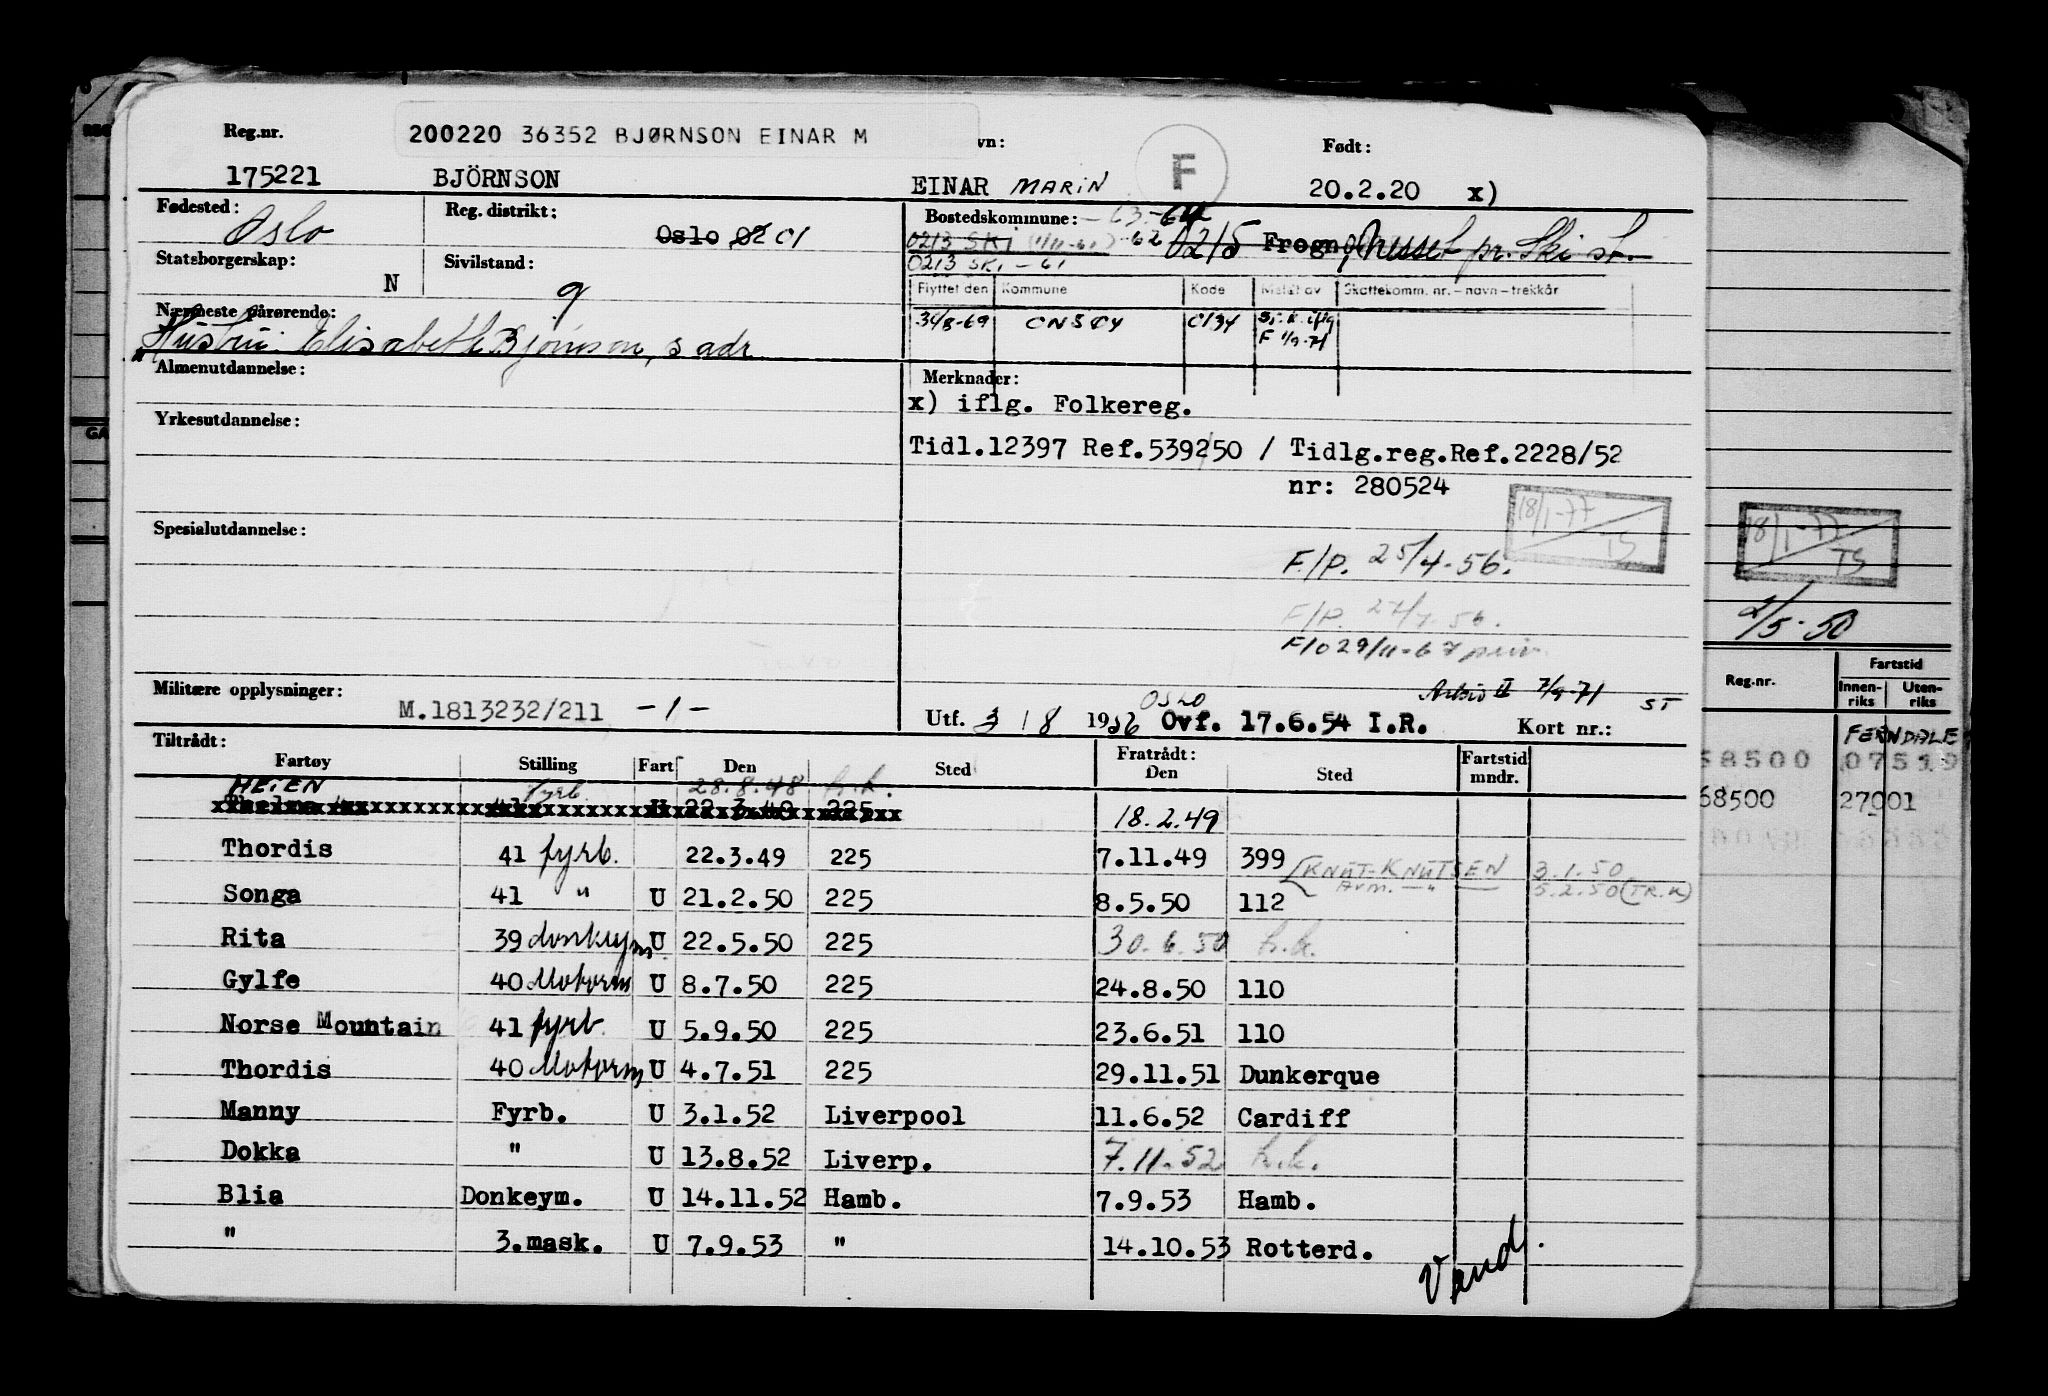 Reg.nr. 200220 36352 BJØRNSON EINAR M vn: F Født:
175221 BJÖRNSON EINAR MARIN 20.2.20 x)
Fødested: Oslo Reg. distrikt: Oslo 02 01 Bostedskommune: -63-64
0213 SKI (1/11-61) -62 0215 Frogn, Nusset pr. Ski st.
0213 SKI - 61
Statsborgerskap: N Sivilstand: g
Flyttet den Kommune Kode Meldt av Skattekomm. nr. – navn – trekkår
Nærmeste pårørende:
Hustru: Elisabeth Bjørnson, s adr.
0134
F 1/9-71
Almenutdannelse: Merknader:
x) iflg. Folkereg.
Yrkesutdannelse:
Tidl.12397 Ref.539250 / Tidlg.reg.Ref.2228/52
nr: 280524
18/1-77 TS
18/1-77 TS
Spesialutdannelse:
F/P. 25/4-56.
F/P. 27/4-56.
F/O 29/11-67
2/5-50
Militære opplysninger: M.1813232/211 -1-
7/9-71 ST
OSLO
Utf. 3/8 1956 Ovf. 17.6.54 I.R. Kort nr.:
Reg.nr. Fartstid Innenriks Utenriks
Tiltrådt: Fratrådt:
Fartøy Stilling Fart Den Sted Den Sted Fartstid mndr.
FERNDALE
68500 07519
68500 27001
HEIEN fyrb 28.8.48 h.k. 18.2.49
Thelma 41 U 22.3.49 225
Thordis 41 fyrb. 22.3.49 225 7.11.49 399 KNUT-KNUTSEN 3.1.50
Avm. — " — 5.2.50 (TR.K)
Songa 41 " U 21.2.50 225 8.5.50 112
Rita 39 donkeym U 22.5.50 225 30.6.50 h.k.
Gylfe 40 Motorm U 8.7.50 225 24.8.50 110
Norse Mountain 41 fyrb. U 5.9.50 225 23.6.51 110
Thordis 40 Motorm U 4.7.51 225 29.11.51 Dunkerque
Manny Fyrb. U 3.1.52 Liverpool 11.6.52 Cardiff
Dokka " U 13.8.52 Liverp. 7.11.52 h.k.
Blia Donkeym. U 14.11.52 Hamb. 7.9.53 Hamb.
" 3.mask. U 7.9.53 " 14.10.53 Rotterd.
Vend.